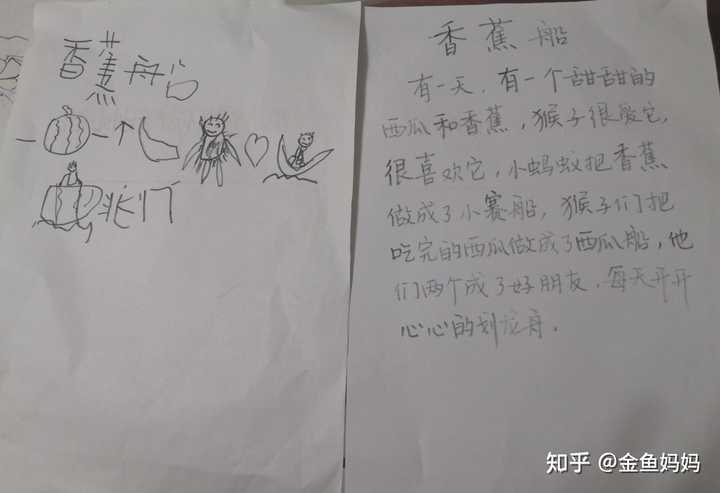 香蕉船
一 一个
我们
香蕉船
有一天,有一个甜甜的
西瓜和香蕉,猴子很爱它,
很喜欢它,小蚂蚁把香蕉
做成了小赛船,猴子们把
吃完的西瓜做成了西瓜船,他
们两个成了好朋友,每天开开
心心的划龙舟.
知乎 @金鱼妈妈